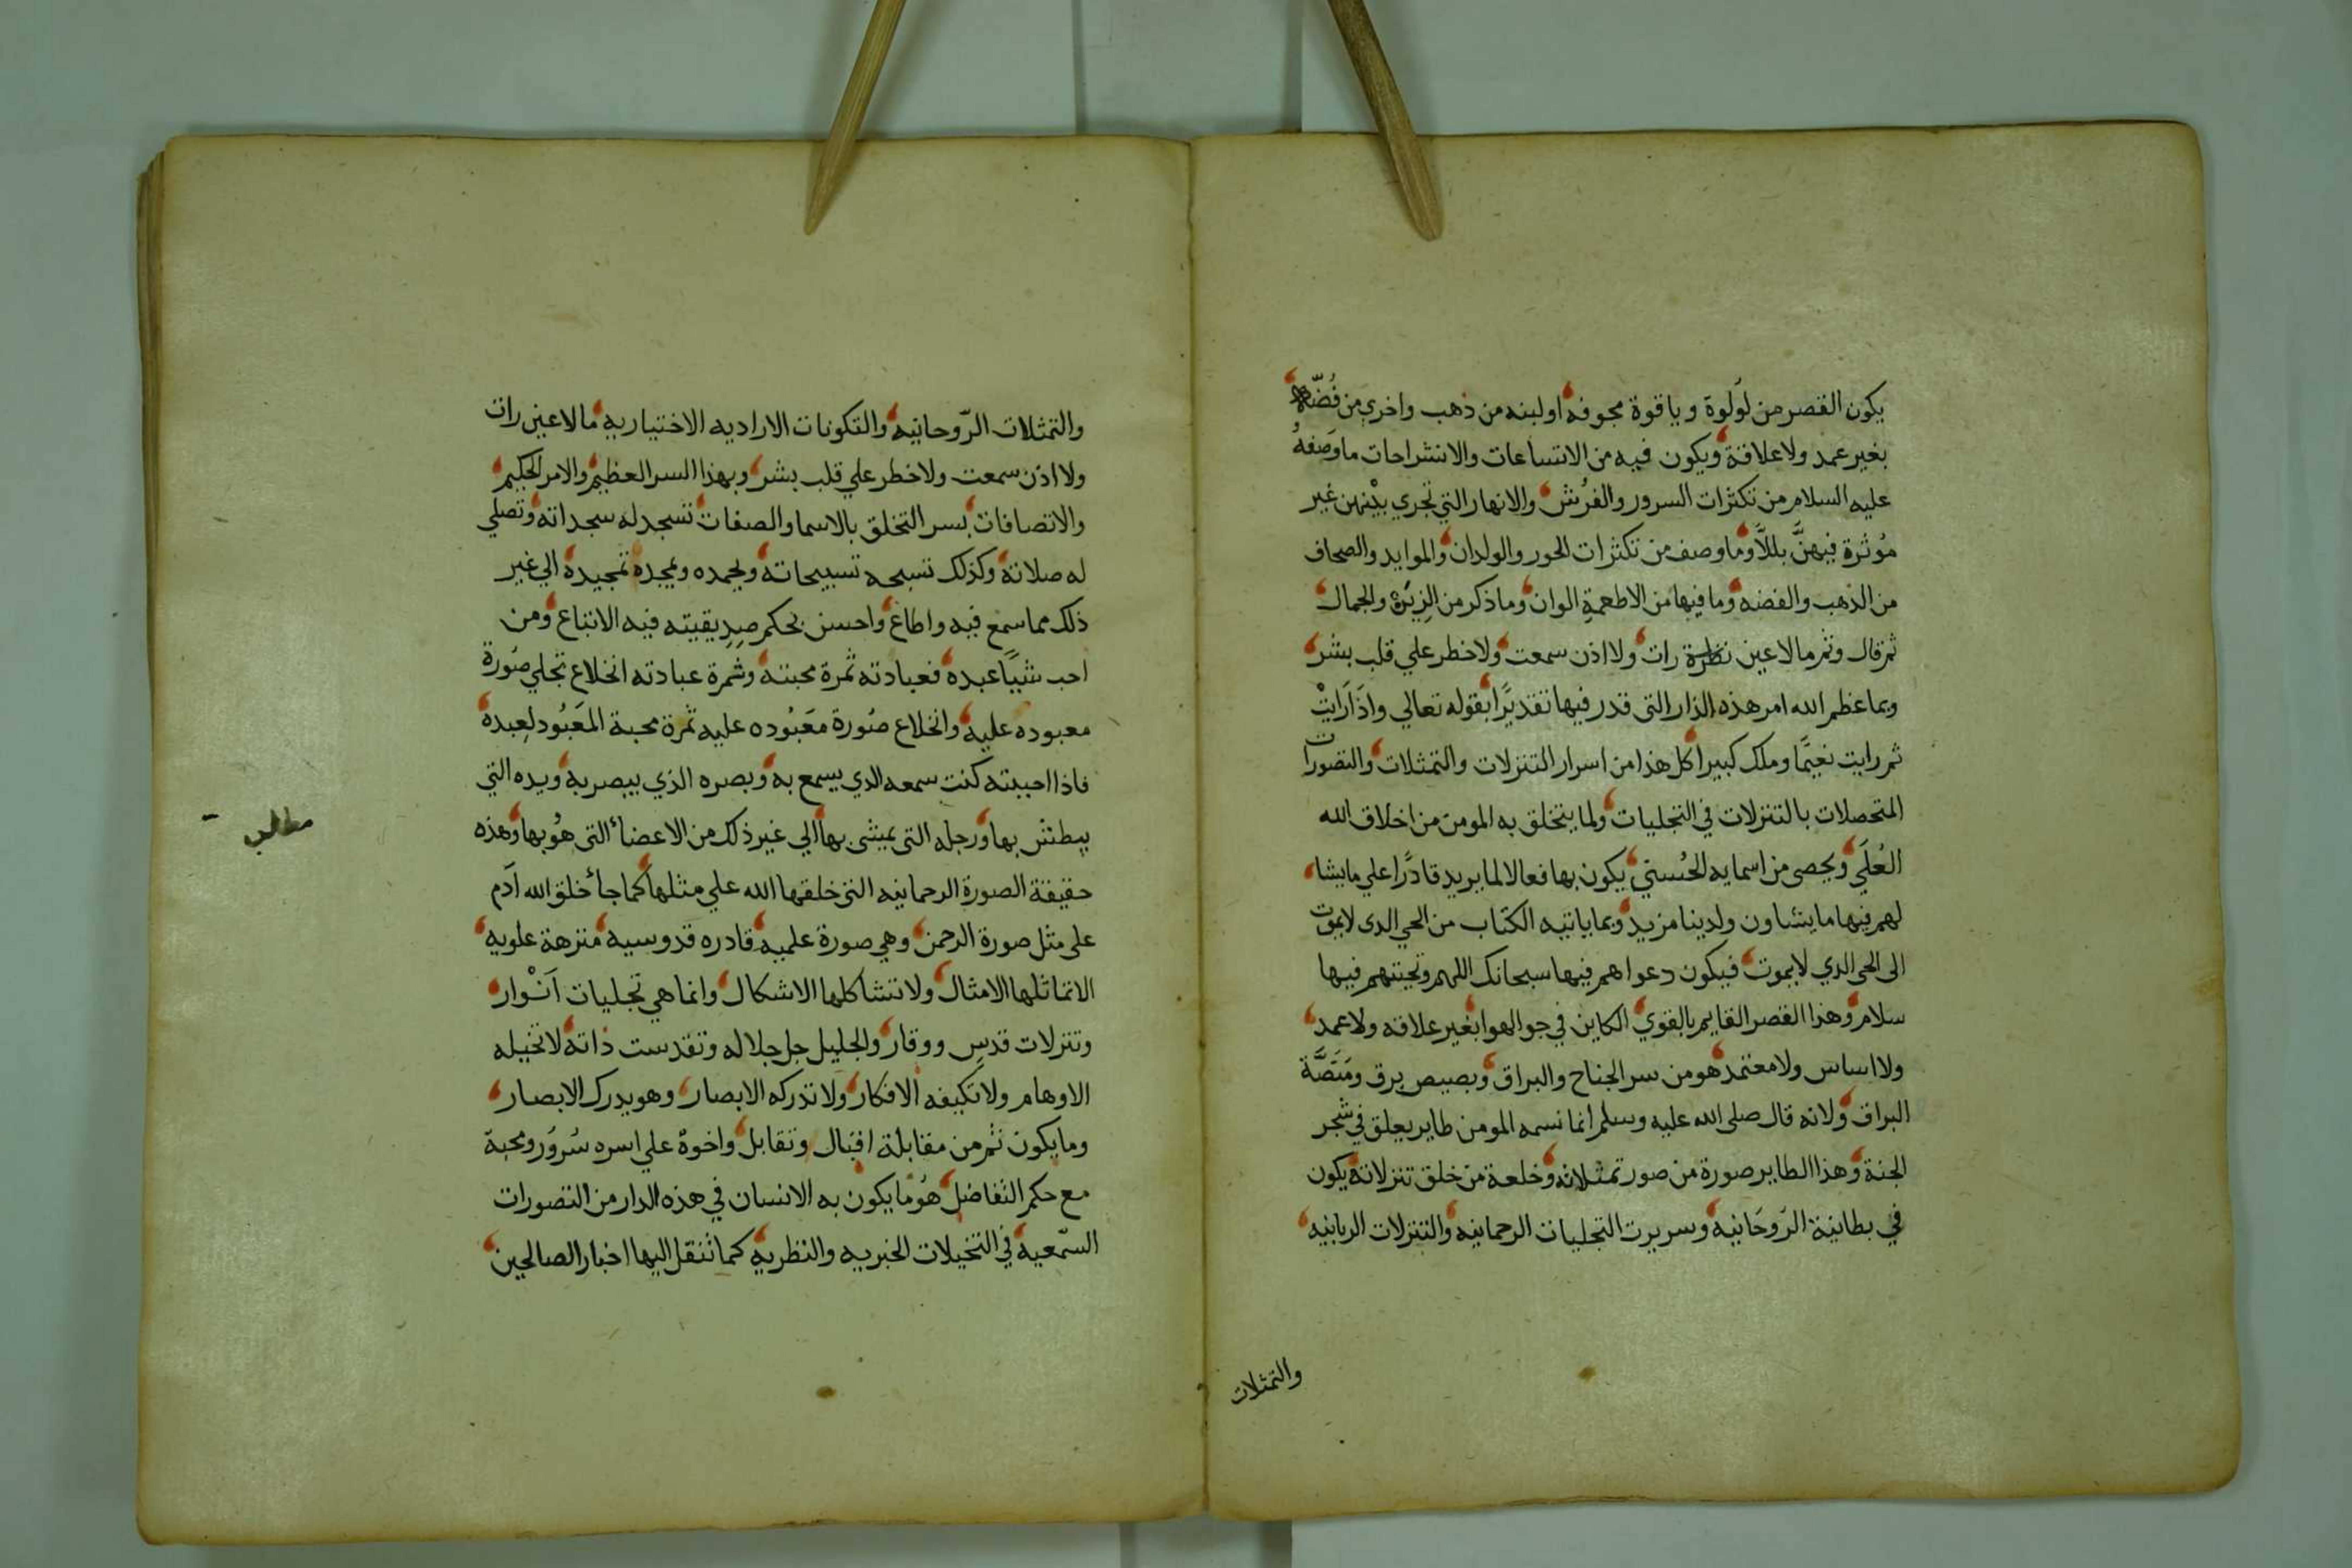 يكون القصر من لولوة وياقوة مجوفه او لبنه من ذهب واخري من فضّه
بغير عمد ولا علاقة ويكون فيه من الاتساعات والانشراحات ما وصفهُ
عليه السلام من تكثرات السرور والفرُش والانهار التي تجري بيْنهن غير
مُوثرة فيهنَّ بللاً وما وصف من تكثرات الحور والولدان والموايد والصحاف
من الذهب والفضه وما فيها من الاطعمة الوان وما ذكر من الزيَّنه والجمال
ثم قال وثم ما لا عين نظرة رات ولا اذن سمعت ولا خطر علي قلب بشر
وبما عظم الله امر هذه الدار التي قدر فيها تقديرًا بقوله تعالي واذا رَايتْ
ثم رايت نعيمًا وملك كبيرا كل هذا من اسرار التنزلات والتمثلات والتصورات
المتحصلات بالتنزلات في التجليات ولما يتخلق به المومن من اخلاق الله
العُلَي ويحصى من اسمايه الحُسني يكون بها فعالا لما يريد قادرًا علي ما يشا
لهم فيها ما يشاون ولدينا مزيد وبما ياتيه الكتاب من الحي الدى لا يموت
الى الحي الدي لا يموت فيكون دعواهم فيها سبحانك اللهم وتحيتهم فيها
سلام وهذا القصر القايم بالقوي الكاين في جو الهوا بغير علاقه ولا عمد
ولا اساس ولا معتمد هو من سر الجناح والبراق وبصيص برق ومَنَصَّة
البراق ولانه قال صلى الله عليه وسلم انما نسمه المومن طاير يعلق في شجر
الجنة وهذا الطاير صورة من صور تمثلاته وخلعة من خلق تنزلاته يكون
في بطانية الرَوحَانيه وسريرت التجليات الرحمانيه والتنزلات الربانيه
والتمثلات
والتمثلات الرّوحانيه والتكونات الاراديه الاختياريه ما لا عين رات
ولا اذن سمعت ولا خطر علي قلب بشر وبهذا السر العظيم والامر الحكيم
والاتصافات بسر التخلق بالاسما والصفات تسجد له سجداته وتصلي
له صلاته وكذلك تسبحه تسبيحاته وتحمده وتمجده تمجيده الي غير
ذلك مما سمع فيه واطاع واحسن بحكم صديقيته فيه الاتباع ومن
احب شيًا عبده فعبادته ثمرة محبته وثمرة عبادته انخلاع تجلي صُورة
معبوده عليه وانخلاع صُورة معَبُوده عليه ثمرة محبة المعَبُود لعبده
فاذا احببته كنت سمعه الدي يسمع به وبصره الذي يبصر به ويده التي
يبطش بها ورجله التى يمشى بها الي غير ذلك من الاعضا التى هُو بها وهذه
مطالب
حقيقة الصورة الرحمانيه التى خلقها الله علي مثلها كما جا خلق الله ادم
على مثل صورة الرحمن وهي صورة علميه قادره قدوسيه منزهة علويه
لا تماثلها الامثال ولا تشاكلها الاشكال وانما هي تجليات اَنْوار
وتنزلات قدس ووقار والجليل جل جلاله وتقدست ذاته لا تخيله
الاوهام ولا تكيفه الافكار ولا تدركه الابصار وهو يدرك الابصار
وما يكون ثم من مقابلة اقبال وتقابل واخوة علي اسره سُرور ومحبة
مع حكم التفاضل هُو ما يكون به الانسان في هذه الدار من التصورات
السّمعيه في التخيلات الخبريه والنظريه كما تنقل اليها اخبار الصالحين